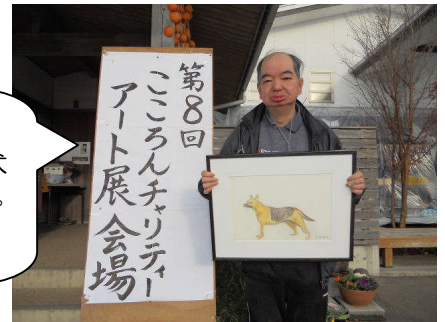 第8回
こころんチャリティー
アート展 会場